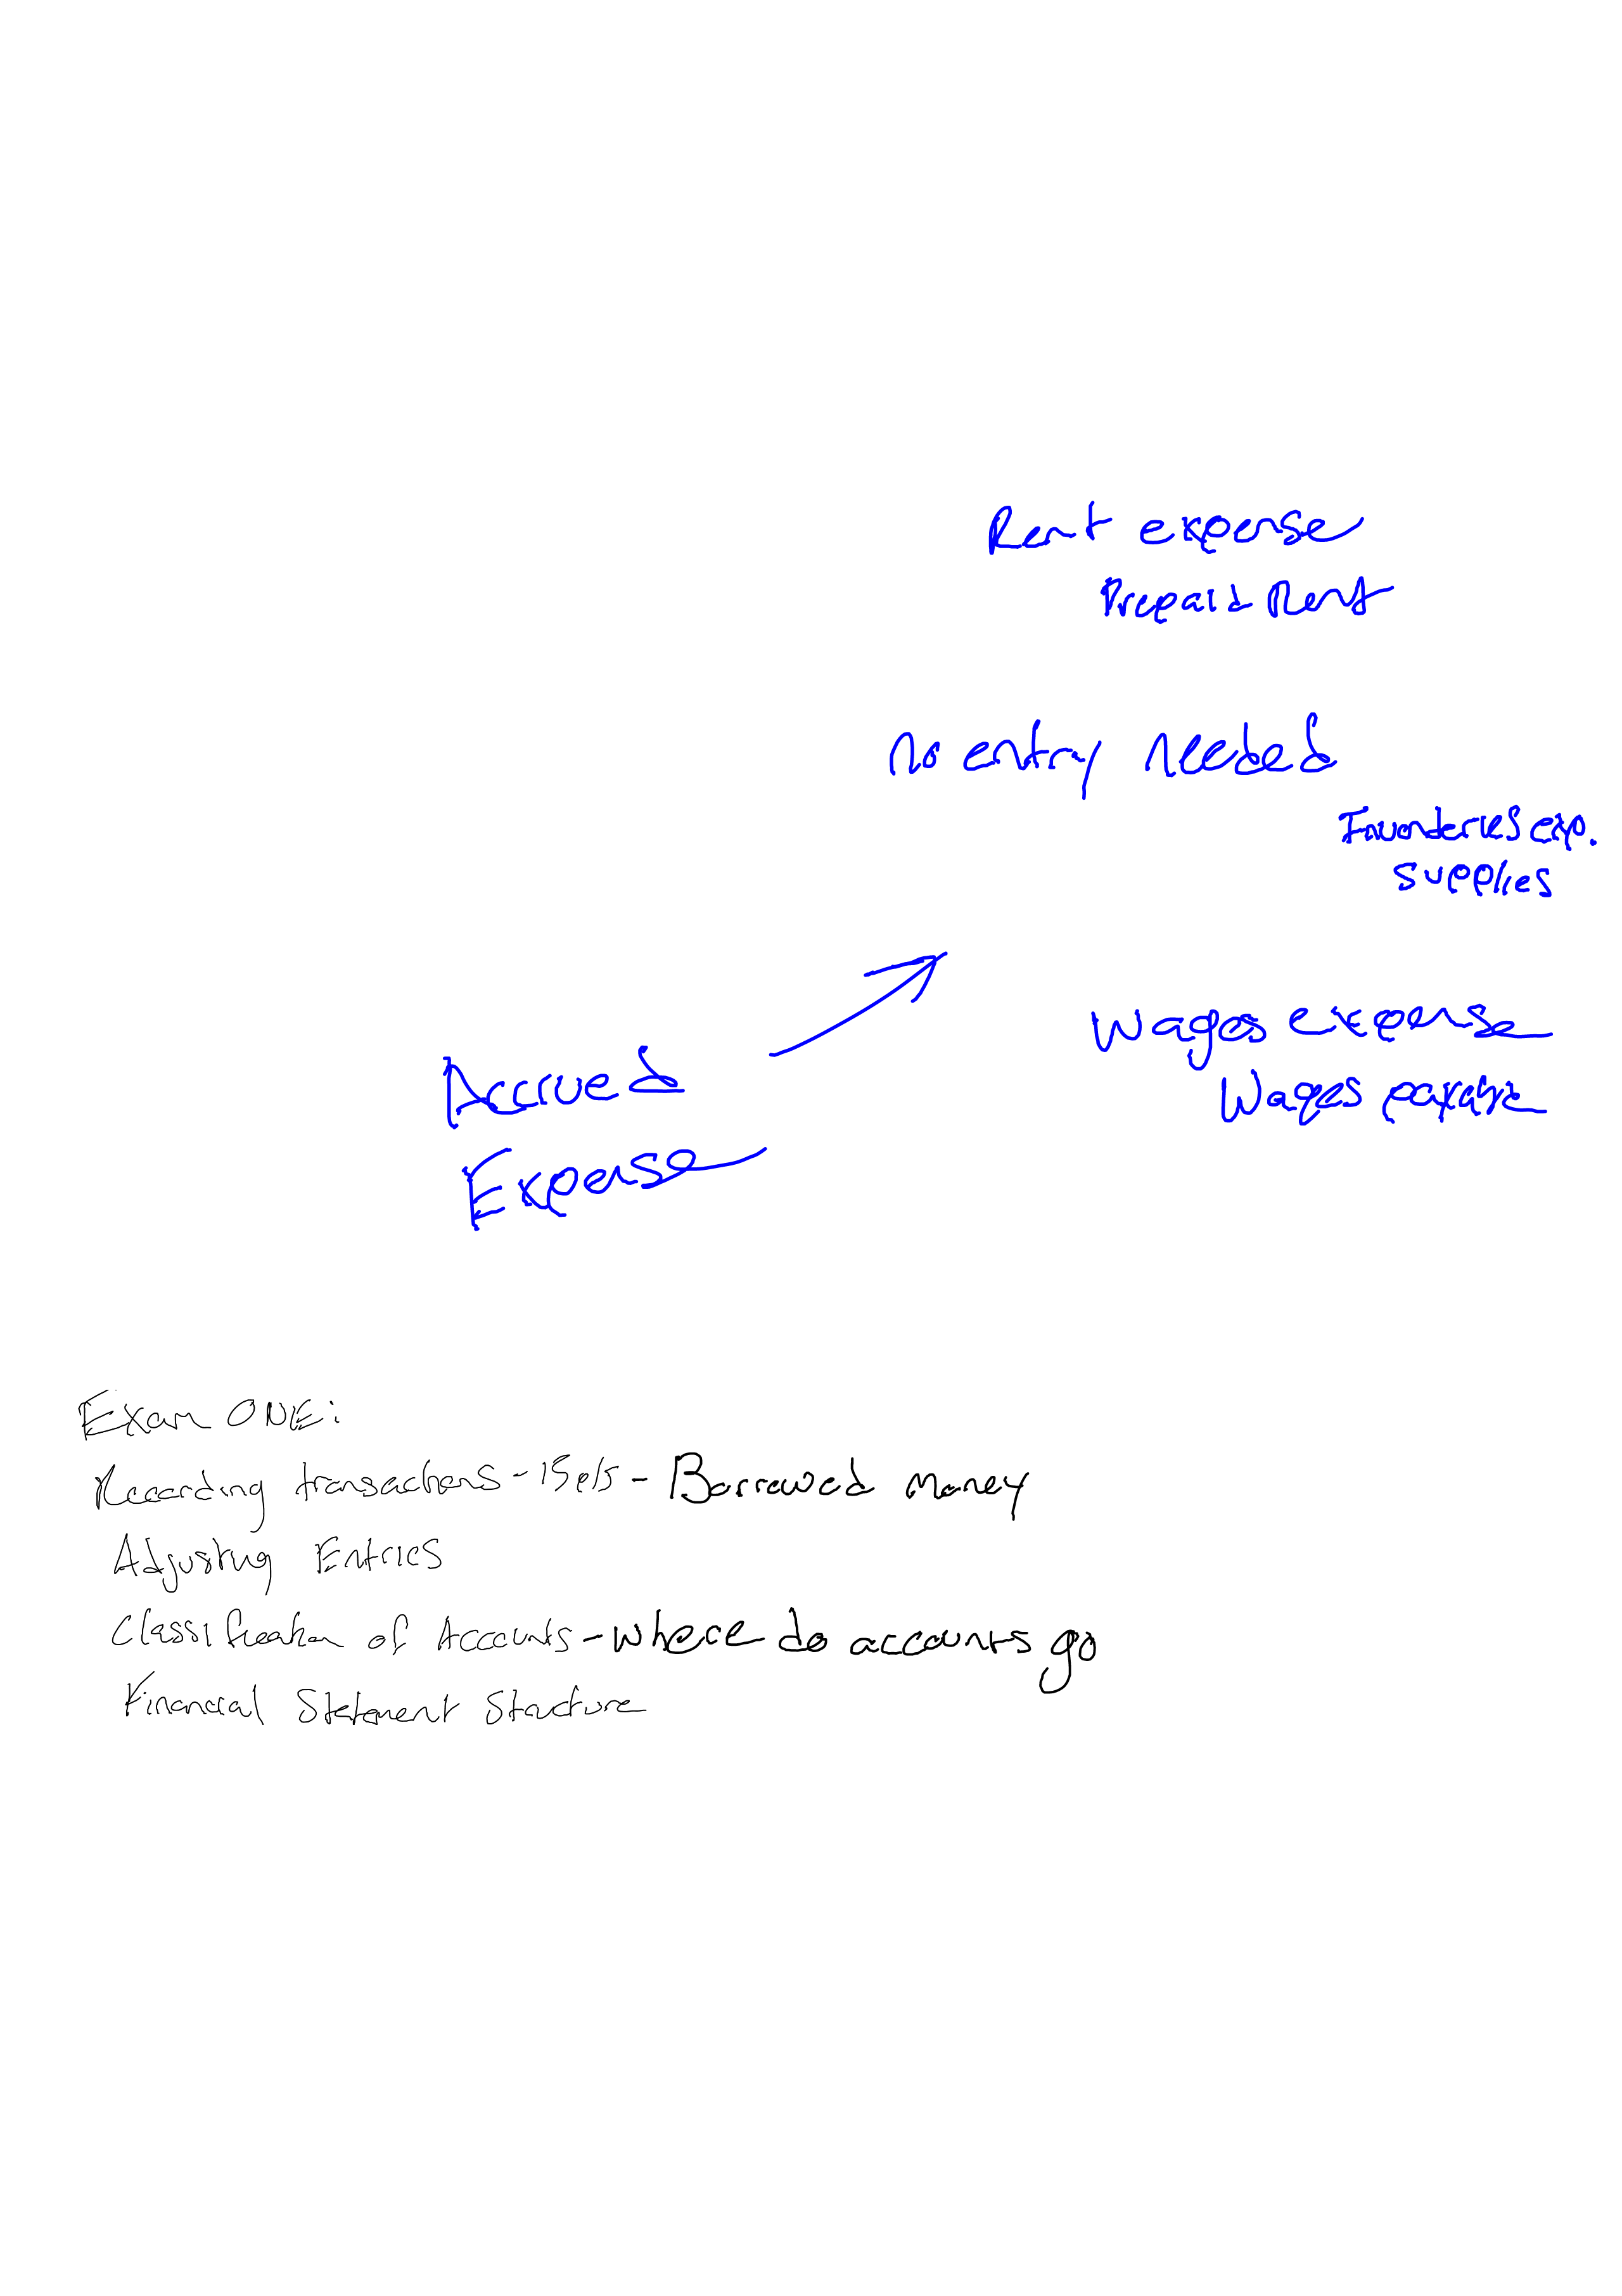 Rent expense
Prepaid Rent
no entry needed
Inventories exp.
supplies
Wages expense
Wages payable
Accrued
Expense
Exam ONE:
Recording transactions - 15 pts - Borrowed money
Adjusting Entries
Classification of Accounts - where do accounts go
Financial Statement Structure